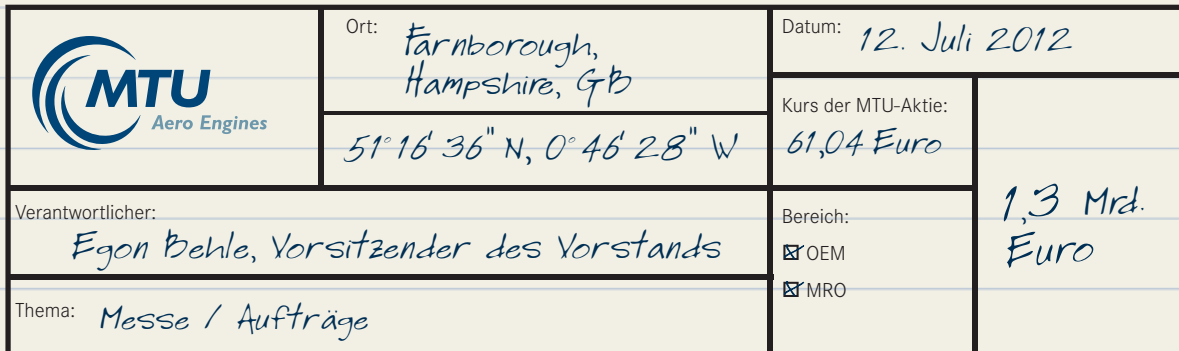 MTU
Aero Engines
Ort:
Farnborough,
Hampshire, GB
51°16'36" N, 0°46'28" W
Datum: 12. Juli 2012
Kurs der MTU-Aktie:
61,04 Euro
1,3 Mrd.
Euro
Verantwortlicher:
Egon Behle, Vorsitzender des Vorstands
Bereich:
OEM
MRO
Thema: Messe / Aufträge